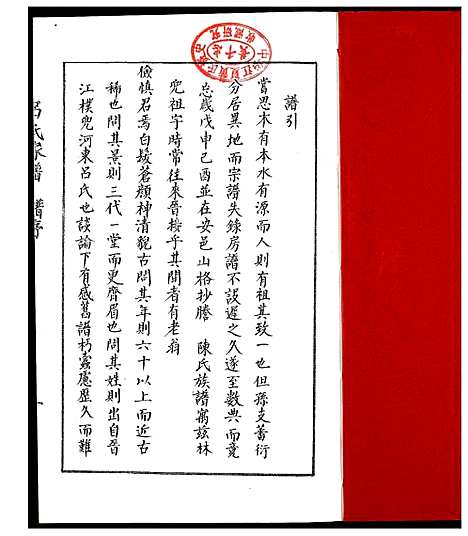 譜引
嘗思木有本水有源而人則有祖其致一也但孫支蕃衍
分居異地而宗譜失錄房譜不設遲之久遂至數典而竟
忘歲戊申己酉並在安邑山格抄謄 陳氏族譜寓茲林
兜祖宇時常往來晉接乎其間者有老翁
儉慎君焉白鬚蒼顏神清貌古問其年則六十以上而近古
稀也問其景則三代一堂而更齊眉也問其姓則出自晉
江樸兜河東呂氏也談論下有感舊譜朽蠹慮歷久而難
呂氏家譜 譜序
一